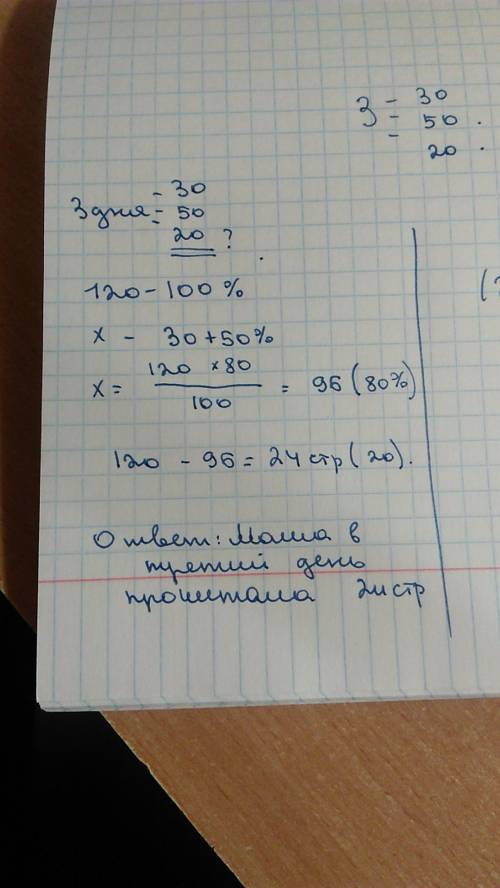 3 - 30
= 50 .
- 20 .
- 30
3 дня = 50
- 20 ?
120 - 100 %
x - 30 + 50%
x = 120 x 80 / 100 = 96 (80%)
120 - 96 = 24 стр (20).
Ответ: Маша в
третий день
прочитала 24 стр